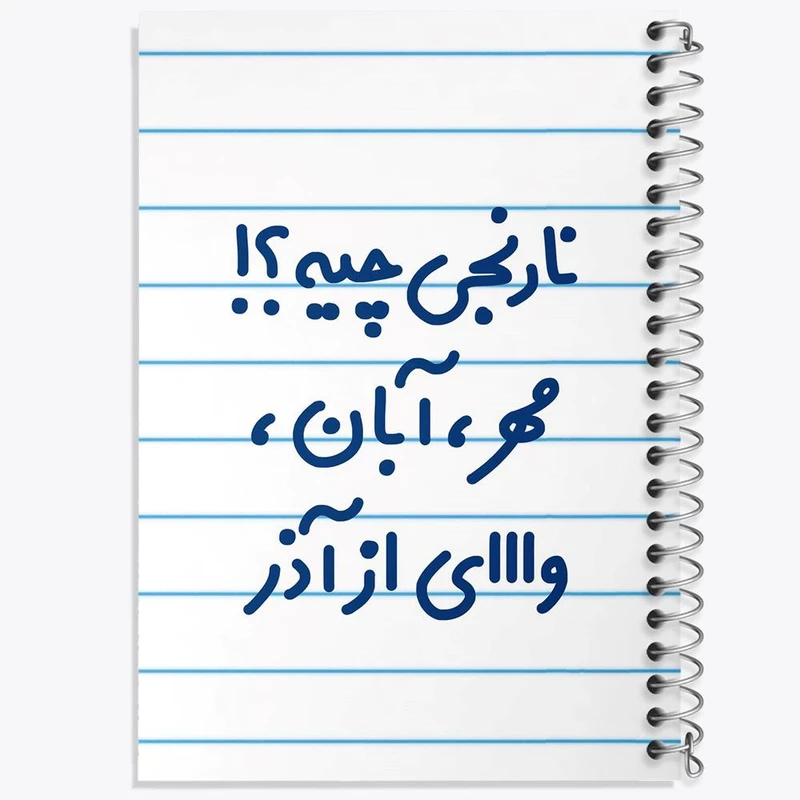 نارنجی چیه؟!
مهر، آبان،
وااااای از آذر